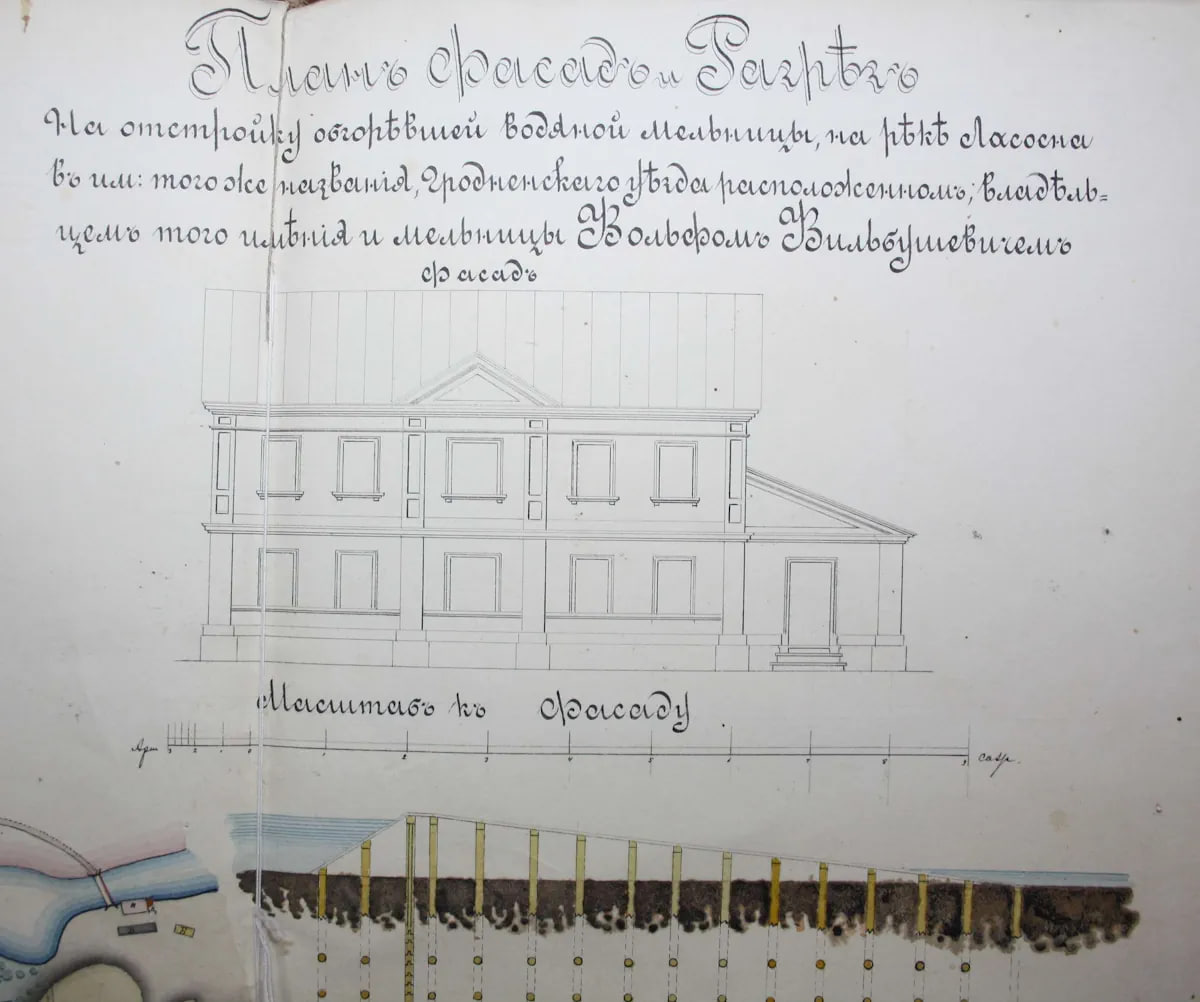 Планъ фасадъ и Разрѣзъ
На отстройку обгорѣвшей водяной мельницы, на рѣкѣ Ласосна
въ им: того же названія, Гродненскаго уѣзда расположенномъ, владѣль=
цемъ того имѣнія и мельницы Вольфомъ Вильбушевичемъ
фасадъ
Масштабъ къ фасаду
Арш 3 2 1 0 1 2 3 4 5 6 7 8 9 саж.